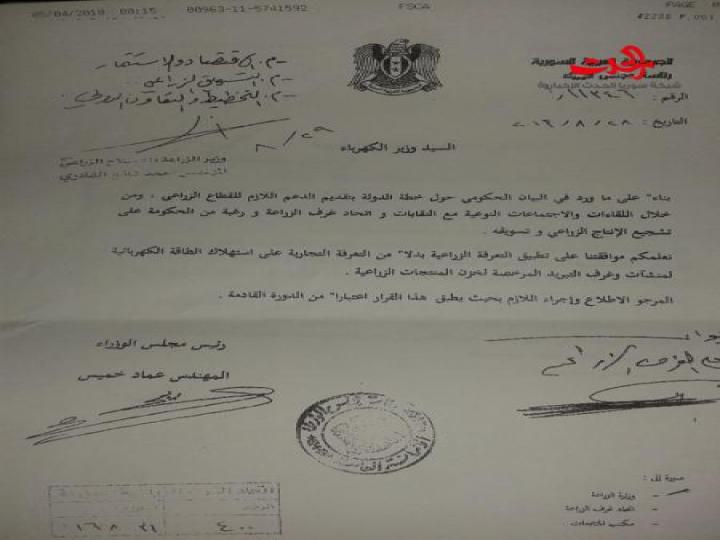 05/04/2010 00:15 00963-11-5741592 FSCA PAGE
42286 P.001
الجمهورية العربية السورية
رئاسة مجلس الوزراء
الحدث
شبكة سوريا الحدث الإخبارية
الرقم : ١١٣٤٦
التاريخ : ٢٠١٦/٨/٢٨
٢- التسويق الزراعي
٣- التخطيط والتعاون الدولي
٨/٢٩
وزير الزراعة والإصلاح الزراعي
المهندس أحمد فاتح القادري
السيد وزير الكهرباء
بناء" على ما ورد في البيان الحكومي حول خطة الدولة بتقديم الدعم اللازم للقطاع الزراعي ، ومن
خلال اللقاءات والاجتماعات النوعية مع النقابات و اتحاد غرف الزراعة و رغبة من الحكومة على
تشجيع الإنتاج الزراعي و تسويقه .
نعلمكم موافقتنا على تطبيق التعرفة الزراعية بدلا" من التعرفة التجارية على استهلاك الطاقة الكهربائية
لمنشآت وغرف التبريد المرخصة لخزن المنتجات الزراعية .
المرجو الاطلاع وإجراء اللازم بحيث يطبق هذا القرار اعتبارا" من الدورة القادمة .
رئيس مجلس الوزراء
المهندس عماد خميس
صورة إلى :
- وزارة الزراعة
- اتحاد غرف الزراعة